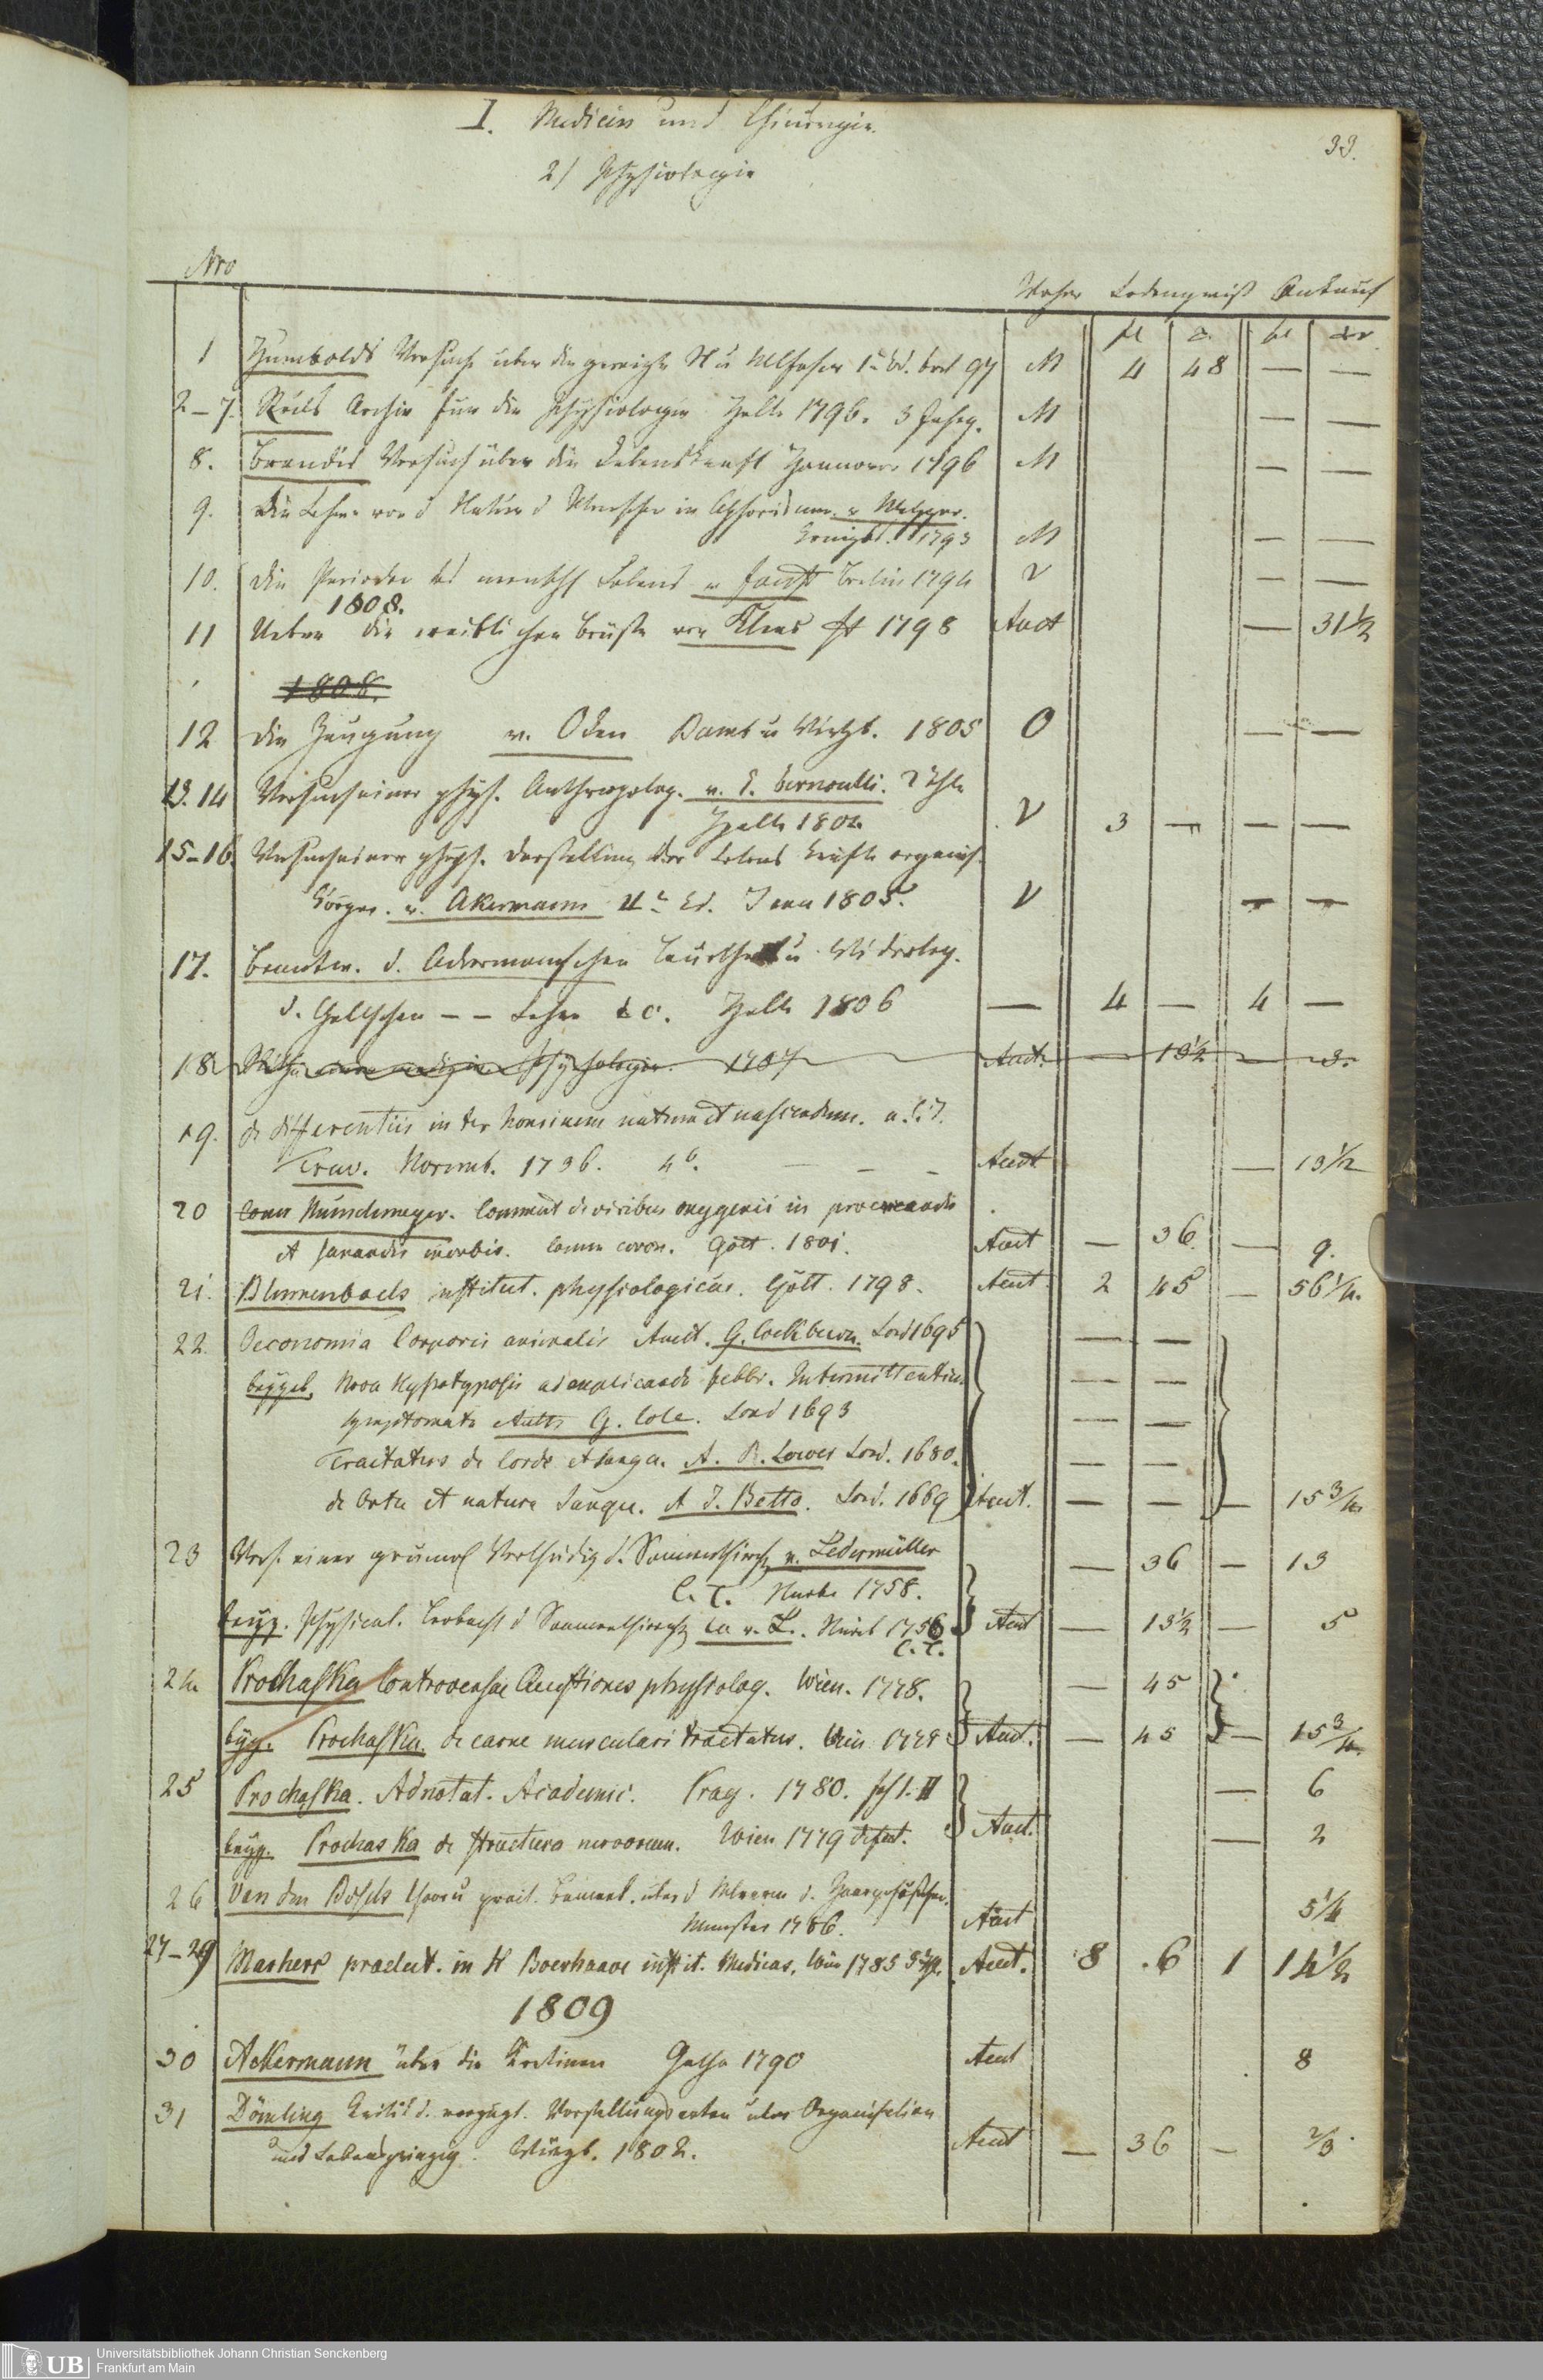 I. Medicin und Chirurgie.
33.
2) Physiologie
Nro
Woher Ladenpreiß Ankauf
fl x. fl xr
1 Humbolds Versuche uber die gereizte M u Nfaser 1r Bd. berl 97 M 4 48 — —
2–7. Reils Archiv fur die Physiologie Halle 1796. 3 Jahrg. M — —
8. Brandis Versuch über die Lebenskraft Hannover 1796 M — —
9. Die Lehre von d Natur d Menschen in Aphorismen v Metzger.
Königsb. 1793 M — —
10. Die Perioden des menschl Lebens v Faust Berlin 1794 V — —
1808.
11 Ueber die weiblichen Brüste von Klees ff 1798 Auct — 31 1/2
1808.
12 Die Zeugung v. Oken Bamb u Wirzb. 1805 O — —
13. 14 Versuch einer phys. Anthropolog. v. C. Bernoulli. 2 Thle
Halle 1804 V 3 — — —
15–16. Versuch einer phys. Darstellung der Lebens Kräfte organis.
Körper. v. Akermann 2r Bd. Jena 1805. V — —
17. Beantw. d. Ackermannschen Beurtheil u Widerleg.
d. Gallschen – – Lehre &c. Halle 1806 — 4 — 4 —
18. Physiologie 1707 Auct. — 13 1/2 — 3.
19. de differentiis inter hominem natum et nascendum. a. C. J.
Trew. Norimb. 1736. 4o. — — — Auct — 13 1/2
20 Conr Nünchmeyer. Comment de viribus oxygenii in procreandis
et sanandis morbis. Comm coron. Gött. 1801. Auct — 36. — 9.
21. Blumenbachs institut. physiologicae. Gött. 1798. Auct 2 45 — 56 1/4.
22. Oeconomia Corporis animalis Auct. G. Cockburn. Lond 1695 — —
beygeb. Nova hypotyposis ad explicanda febbr. Intermittentium — —
symptomata Autt G. Cole. Lond 1693 — —
Tractatus de Corde et sangu. A. R. Lower Lond. 1680. — —
de Ortu et natura Sangu. A J. Betto. Lond. 1669 Auct. — — — 15 3/4
23 Vers. einer grundl Vertheidig d. Saamenthierch v. Ledermüller — 36 — 13
C. T. Nürnb 1758.
beyg. Physical. Beobacht d Saamenthierch. v. L. Nürnb 1756 Auct — 13 1/2 — 5
C. T.
24 Prochaska Controversae Quaestiones physiolog. Wien. 1778. — 45
beyg. Prochaska. de carne musculari tractatus. Wien 1778 Auct. — 45 — 15 3/4
25 Prochaska. Adnotat. Academic. Prag. 1780. fas I. II — 6
beyg. Prochaska de structura nervorum. Wien 1779 defect. Auct. — 2
26 Van den Bosch theor u pract. Bemerk. uber d Haargefäschen.
Münster 1786. Auct 5 1/4
27–29 Marhers praelect. in H Boerhaave instit. Medicas. Wien 1785 Auct. 8 .6 1 14 1/2
1809
30 Ackermann über die Kretinen Gotha 1790 Auct 8
31 Dömling Kritik d. vorzügl. Vorstellungsarten über Organisation
und Lebensprinzip. Würzb. 1802. Auct — 36 — 2/3
UB Universitätsbibliothek Johann Christian Senckenberg
Frankfurt am Main